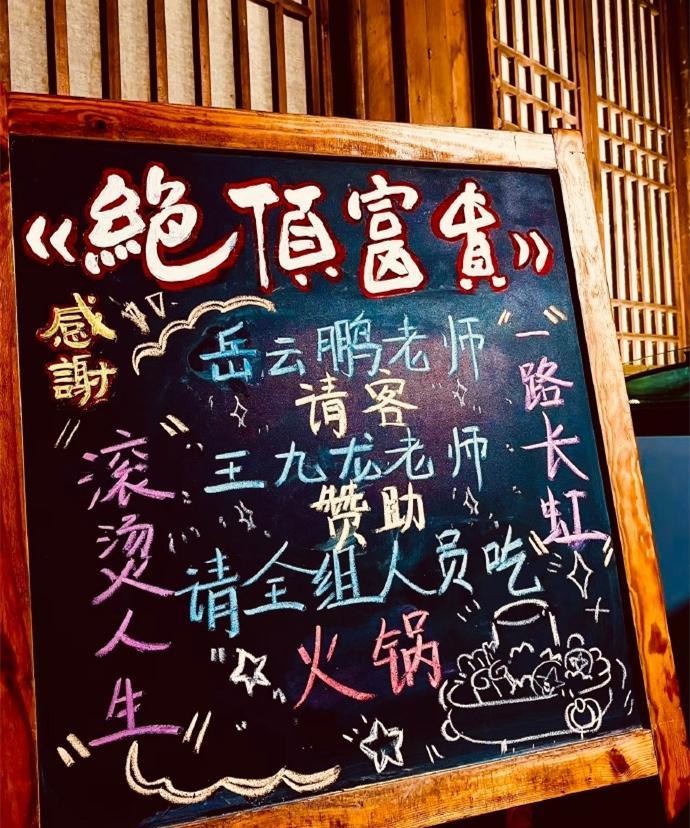 《絕頂富貴》
感謝
岳云鹏老师
请客
王九龙老师
赞助
请全组人员吃
火锅
滚烫人生
一路长虹